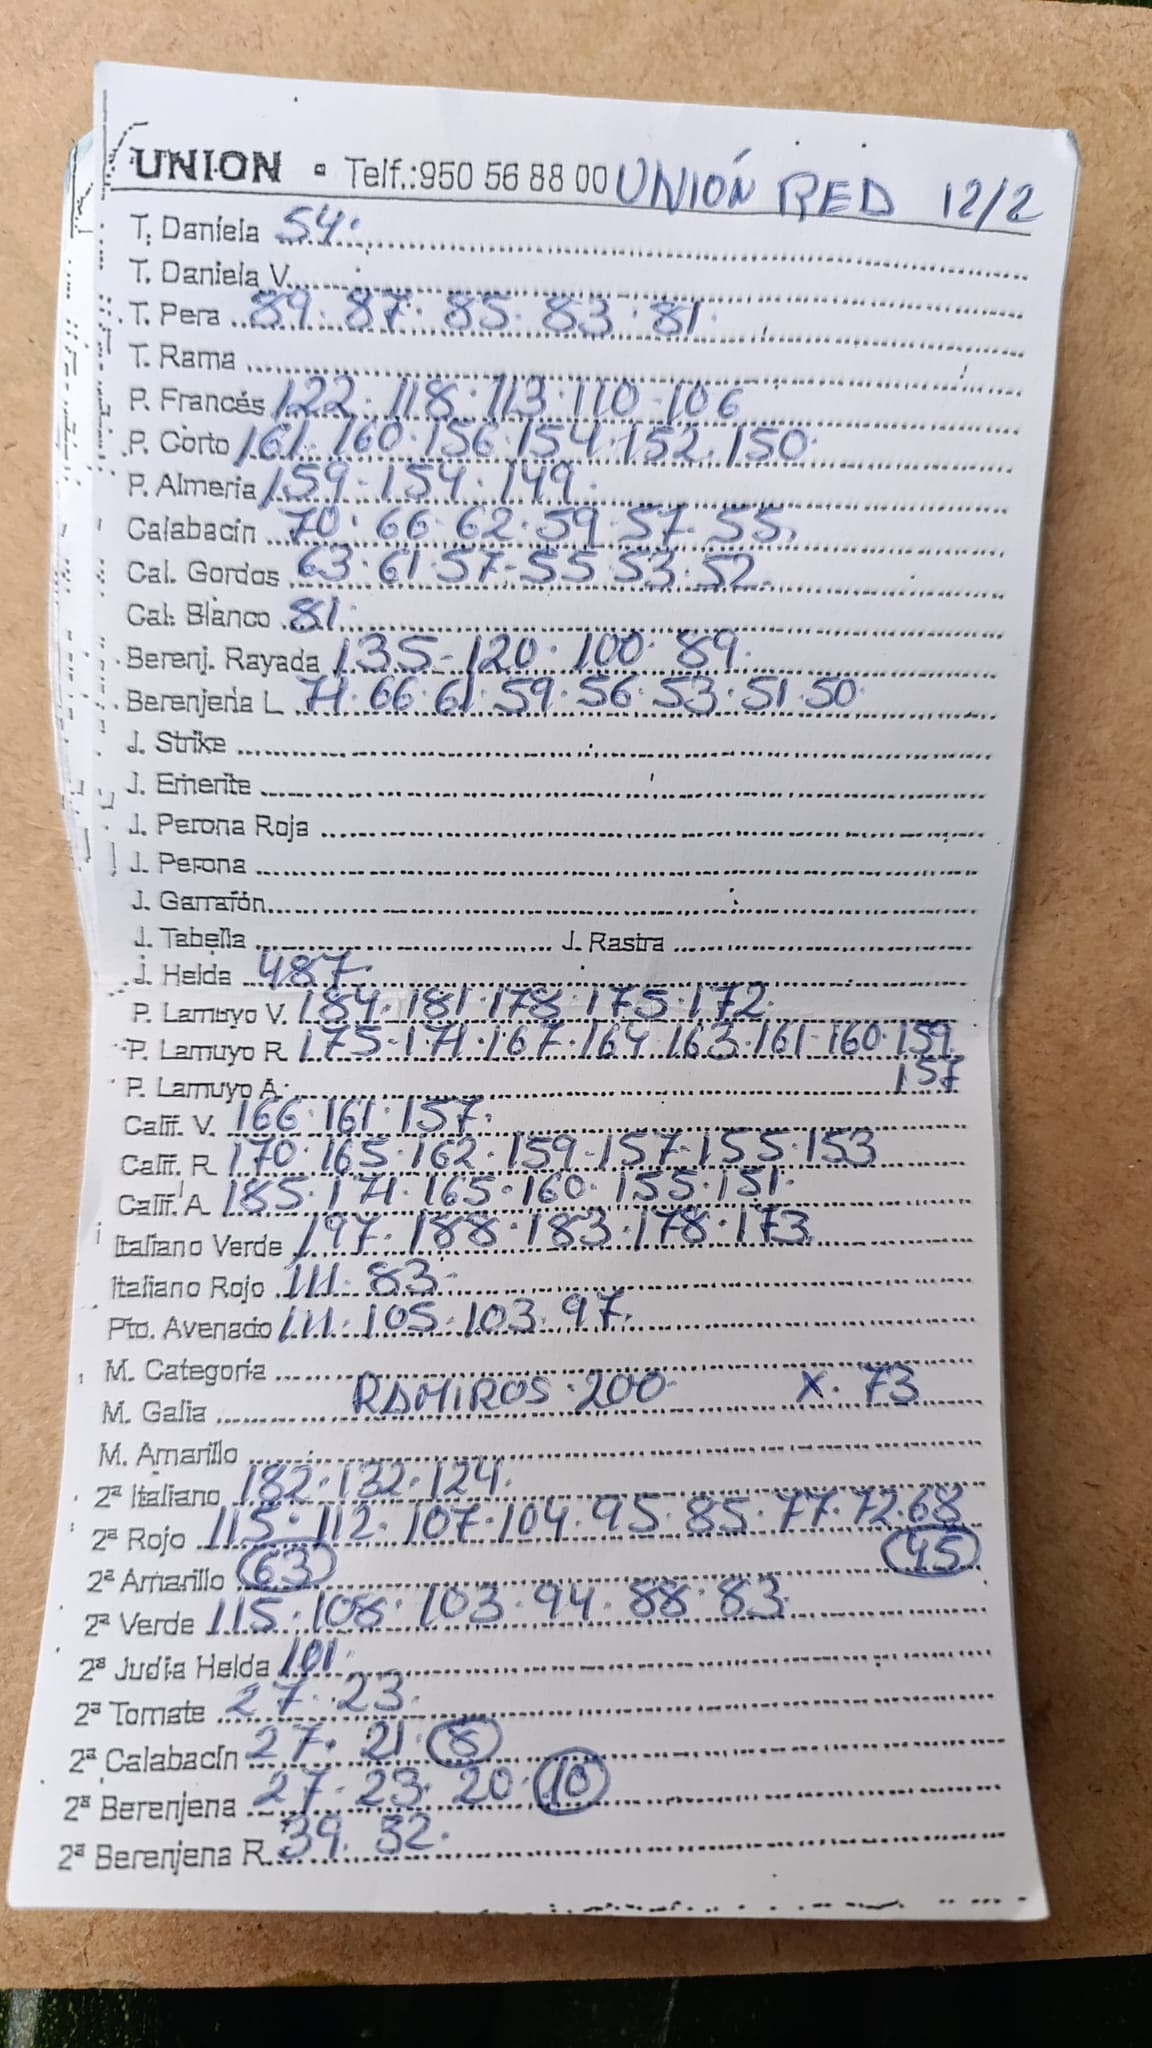 UNION - Telf.:950 56 88 00 UNIÓN RED 12/2
T. Daniela 54.
T. Daniela V.
T. Pera 89. 87. 85. 83. 81.
T. Rama
P. Francés 122. 118. 113. 110. 106
P. Corto 161. 160. 156. 154. 152. 150.
P. Almeria 159. 154. 149.
Calabacín 70. 66. 62. 59. 57. 55.
Cal. Gordos 63. 61. 57. 55. 53. 52.
Cal. Blanco 81.
Berenj. Rayada 135. 120. 100. 89.
Berenjena L 71. 66. 61. 59. 56. 53. 51. 50.
J. Strike
J. Emerite
J. Perona Roja
J. Perona
J. Garrafón
J. Tabella J. Rastra
J. Helda 487.
P. Lamuyo V. 184. 181. 178. 175. 172.
P. Lamuyo R. 175. 171. 167. 164. 163. 161. 160. 159.
P. Lamuyo A. 157
Calif. V. 166. 161. 157.
Calif. R. 170. 165. 162. 159. 157. 155. 153
Calif. A. 185. 171. 165. 160. 155. 151.
Italiano Verde 197. 188. 183. 178. 173.
Italiano Rojo 111. 83.
Pto. Avenado 111. 105. 103. 97.
M. Categoría
M. Galia RAMIROS. 200. X. 73
M. Amarillo
2ª Italiano 182. 132. 124.
2ª Rojo 115. 112. 107. 104. 95. 85. 77. 72. 68
2ª Amarillo 63 45
2ª Verde 115. 108. 103. 94. 88. 83.
2ª Judía Helda 101.
2ª Tomate 27. 23.
2ª Calabacín 27. 21. 8
2ª Berenjena 27. 23. 20. 10
2ª Berenjena R. 39. 32.